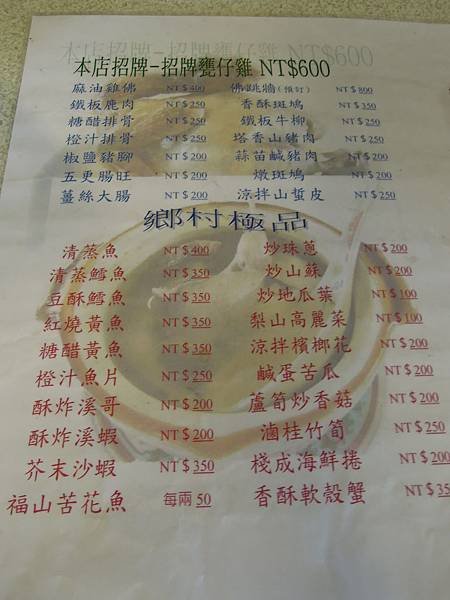 本店招牌-招牌甕仔雞 NT$600
麻油雞佛 NT$400 佛跳牆(預訂) NT$800
鐵板鹿肉 NT$250 香酥斑鳩 NT$350
糖醋排骨 NT$250 鐵板牛柳 NT$250
橙汁排骨 NT$250 塔香山豬肉 NT$250
椒鹽豬腳 NT$200 蒜苗鹹豬肉 NT$200
五更腸旺 NT$200 燉斑鳩 NT$200
薑絲大腸 NT$200 涼拌山蜇皮 NT$250
鄉村極品
清蒸魚 NT$400 炒珠蔥 NT$200
清蒸鱈魚 NT$350 炒山蘇 NT$200
豆酥鱈魚 NT$350 炒地瓜葉 NT$100
紅燒黃魚 NT$350 梨山高麗菜 NT$100
糖醋黃魚 NT$350 涼拌檳榔花 NT$200
橙汁魚片 NT$250 鹹蛋苦瓜 NT$200
酥炸溪哥 NT$200 蘆筍炒香菇 NT$200
酥炸溪蝦 NT$200 滷桂竹筍 NT$250
芥末沙蝦 NT$350 棧成海鮮捲 NT$200
福山苦花魚 每兩50 香酥軟殼蟹 NT$35